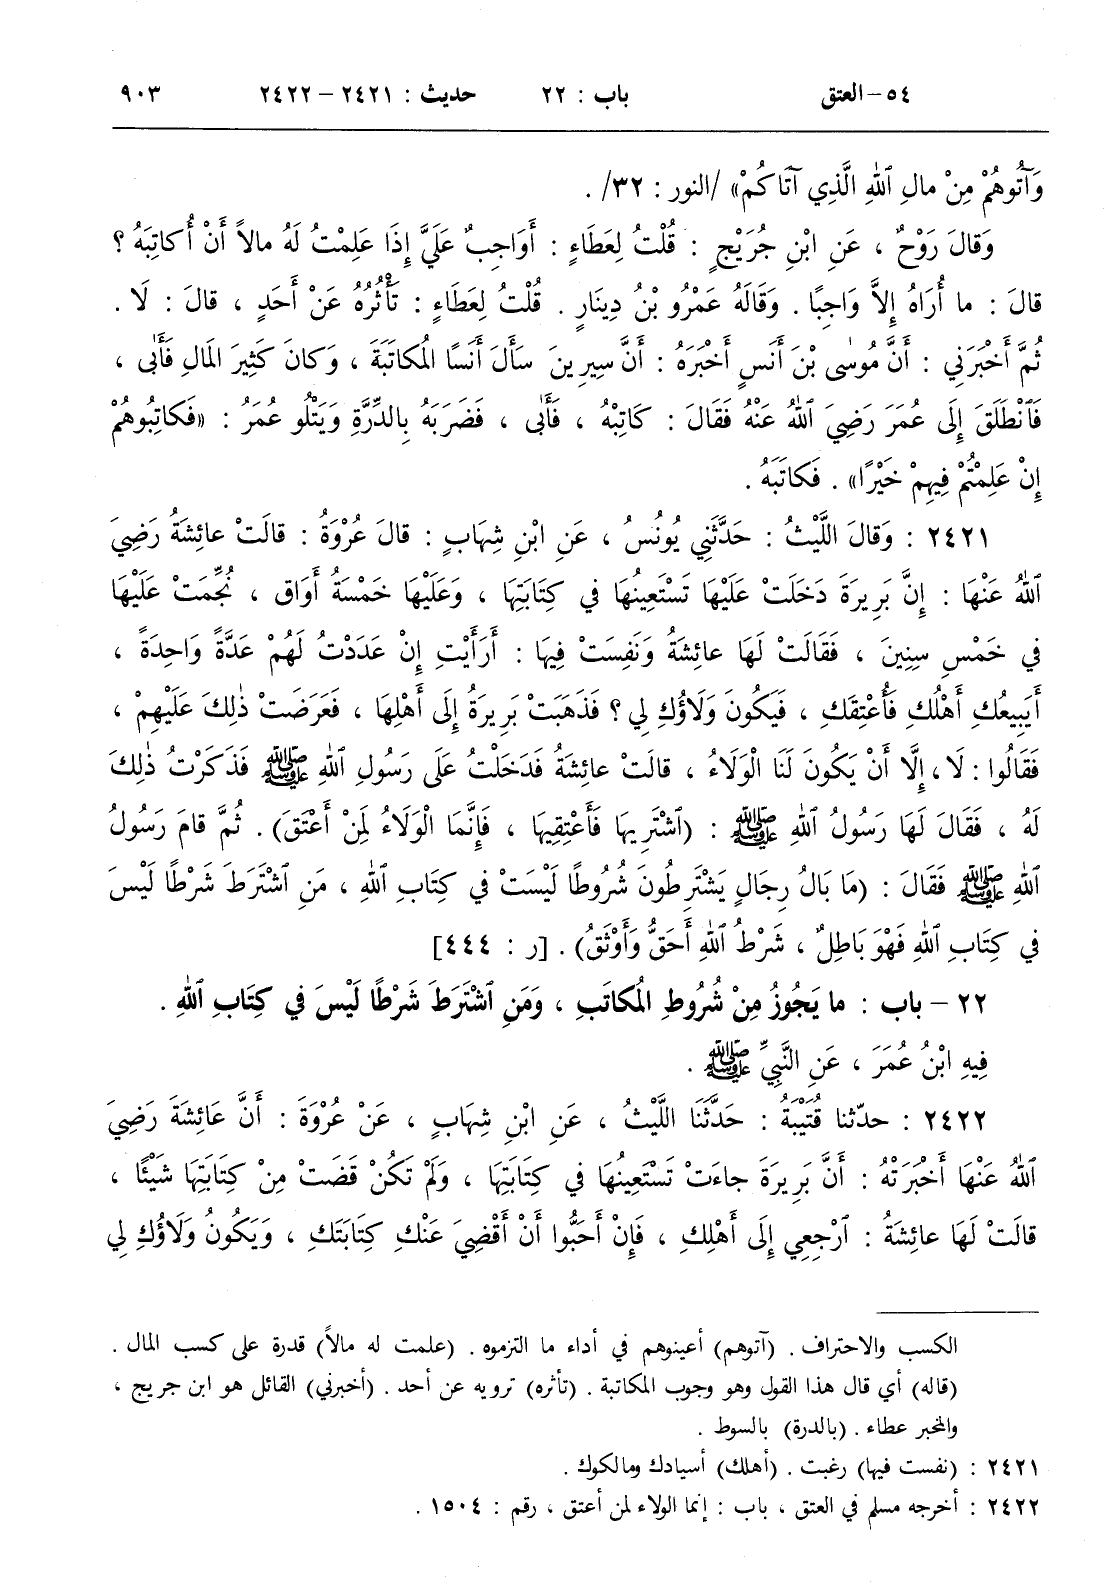 ٥٤-العتق باب : ٢٢ حديث : ٢٤٢١ - ٢٤٢٢ ٩٠٣
وَآتُوهُمْ مِنْ مالِ ٱللهِ الَّذِي آتَاكُمْ» /النور : ٣٢/ .
وَقالَ رَوْحٌ ، عَنِ ابْنِ جُرَيْجٍ : قُلْتُ لِعَطَاءٍ : أَوَاجِبٌ عَلَيَّ إِذَا عَلِمْتُ لَهُ مالاً أَنْ أُكاتِبَهُ ؟
قالَ : ما أُرَاهُ إِلاَّ وَاجِبًا . وَقَالَهُ عَمْرُو بْنُ دِينَارٍ . قُلْتُ لِعَطَاءٍ : تَأْثُرُهُ عَنْ أَحَدٍ ، قالَ : لَا .
ثُمَّ أَخْبَرَنِي : أَنَّ مُوسٰى بْنَ أَنَسٍ أَخْبَرَهُ : أَنَّ سِيرِينَ سَأَلَ أَنَسًا الْمُكاتَبَةَ ، وَكانَ كَثِيرَ المَالِ فَأَبٰى ،
فَٱنْطَلَقَ إِلَى عُمَرَ رَضِيَ ٱللهُ عَنْهُ فَقَالَ : كَاتِبْهُ ، فَأَبٰى ، فَضَرَبَهُ بِالدِّرَّةِ وَيَتْلُو عُمَرُ : «فَكاتِبُوهُمْ
إِنْ عَلِمْتُمْ فِيهِمْ خَيْرًا» . فَكاتَبَهُ .
٢٤٢١ : وَقالَ اللَّيْثُ : حَدَّثَنِي يُونُسُ ، عَنِ ابْنِ شِهَابٍ : قالَ عُرْوَةُ : قالَتْ عائِشَةُ رَضِيَ
ٱللهُ عَنْهَا : إِنَّ بَرِيرَةَ دَخَلَتْ عَلَيْهَا تَسْتَعِينُهَا في كِتَابَتِهَا ، وَعَلَيْهَا خَمْسَةُ أَوَاقٍ ، نُجِّمَتْ عَلَيْهَا
في خَمْسِ سِنِينَ ، فَقَالَتْ لَهَا عائِشَةُ وَنَفِسَتْ فِيهَا : أَرَأَيْتِ إِنْ عَدَدْتُ لَهُمْ عَدَّةً وَاحِدَةً ،
أَيَبِيعُكِ أَهْلُكِ فَأُعْتِقَكِ ، فَيَكُونَ وَلَاؤُكِ لِي ؟ فَذَهَبَتْ بَرِيرَةُ إِلَى أَهْلِهَا ، فَعَرَضَتْ ذٰلِكَ عَلَيْهِمْ ،
فَقَالُوا : لَا ، إِلَّا أَنْ يَكُونَ لَنَا الْوَلَاءُ ، قالَتْ عائِشَةُ فَدَخَلْتُ عَلَى رَسُولِ ٱللهِ ﷺ فَذَكَرْتُ ذٰلِكَ
لَهُ ، فَقَالَ لَهَا رَسُولُ ٱللهِ ﷺ : (ٱشْتَرِيهَا فَأَعْتِقِيهَا ، فَإِنَّمَا الْوَلَاءُ لِمَنْ أَعْتَقَ) . ثُمَّ قامَ رَسُولُ
ٱللهِ ﷺ فَقَالَ : (مَا بَالُ رِجَالٍ يَشْتَرِطُونَ شُرُوطًا لَيْسَتْ في كِتَابِ ٱللهِ ، مَنِ ٱشْتَرَطَ شَرْطًا لَيْسَ
في كِتَابِ ٱللهِ فَهْوَ بَاطِلٌ ، شَرْطُ ٱللهِ أَحَقُّ وَأَوْثَقُ) . [ر : ٤٤٤]
٢٢ - باب : ما يَجُوزُ مِنْ شُرُوطِ الْمُكاتَبِ ، وَمَنِ ٱشْتَرَطَ شَرْطًا لَيْسَ في كِتَابِ ٱللهِ .
فِيهِ ابْنُ عُمَرَ ، عَنِ النَّبِيِّ ﷺ .
٢٤٢٢ : حدّثنا قُتَيْبَةُ : حَدَّثَنَا اللَّيْثُ ، عَنِ ابْنِ شِهَابٍ ، عَنْ عُرْوَةَ : أَنَّ عَائِشَةَ رَضِيَ
ٱللهُ عَنْهَا أَخْبَرَتْهُ : أَنَّ بَرِيرَةَ جاءَتْ تَسْتَعِينُهَا في كِتَابَتِهَا ، وَلَمْ تَكُنْ قَضَتْ مِنْ كِتَابَتِهَا شَيْئًا ،
قالَتْ لَهَا عائِشَةُ : ٱرْجِعِي إِلَى أَهْلِكِ ، فَإِنْ أَحَبُّوا أَنْ أَقْضِيَ عَنْكِ كِتَابَتَكِ ، وَيَكُونُ وَلَاؤُكِ لِي
الكسب والاحتراف . (آتوهم) أعينوهم في أداء ما التزموه . (علمت له مالاً) قدرة على كسب المال .
(قاله) أي قال هذا القول وهو وجوب المكاتبة . (تأثره) ترويه عن أحد . (أخبرني) القائل هو ابن جريج ،
والمخبر عطاء . (بالدرة) بالسوط .
٢٤٢١ : (نفست فيها) رغبت . (أهلك) أسيادك ومالكوك .
٢٤٢٢ : أخرجه مسلم في العتق ، باب : إنما الولاء لمن أعتق ، رقم : ١٥٠٤ .